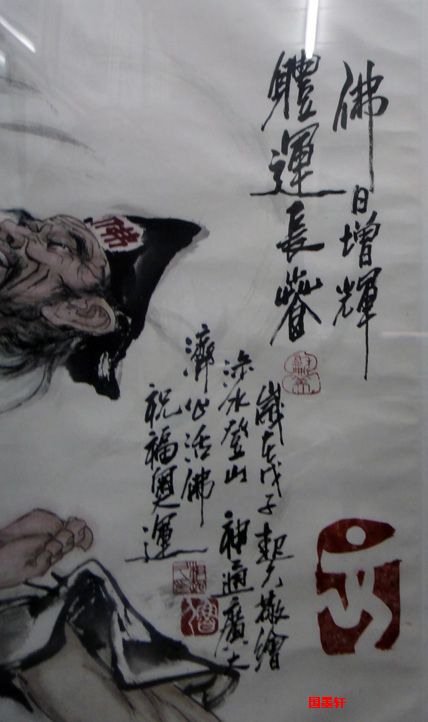 佛日增輝
體運長萅
歲在戊子敬繪
涉水登山 神通廣大
濟公活佛
祝福奧運
佛
国墨轩